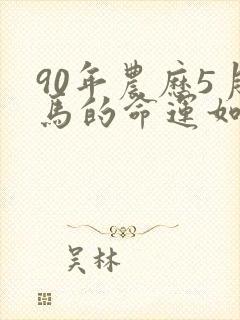 90年農歷5月
馬的命運如
吴林